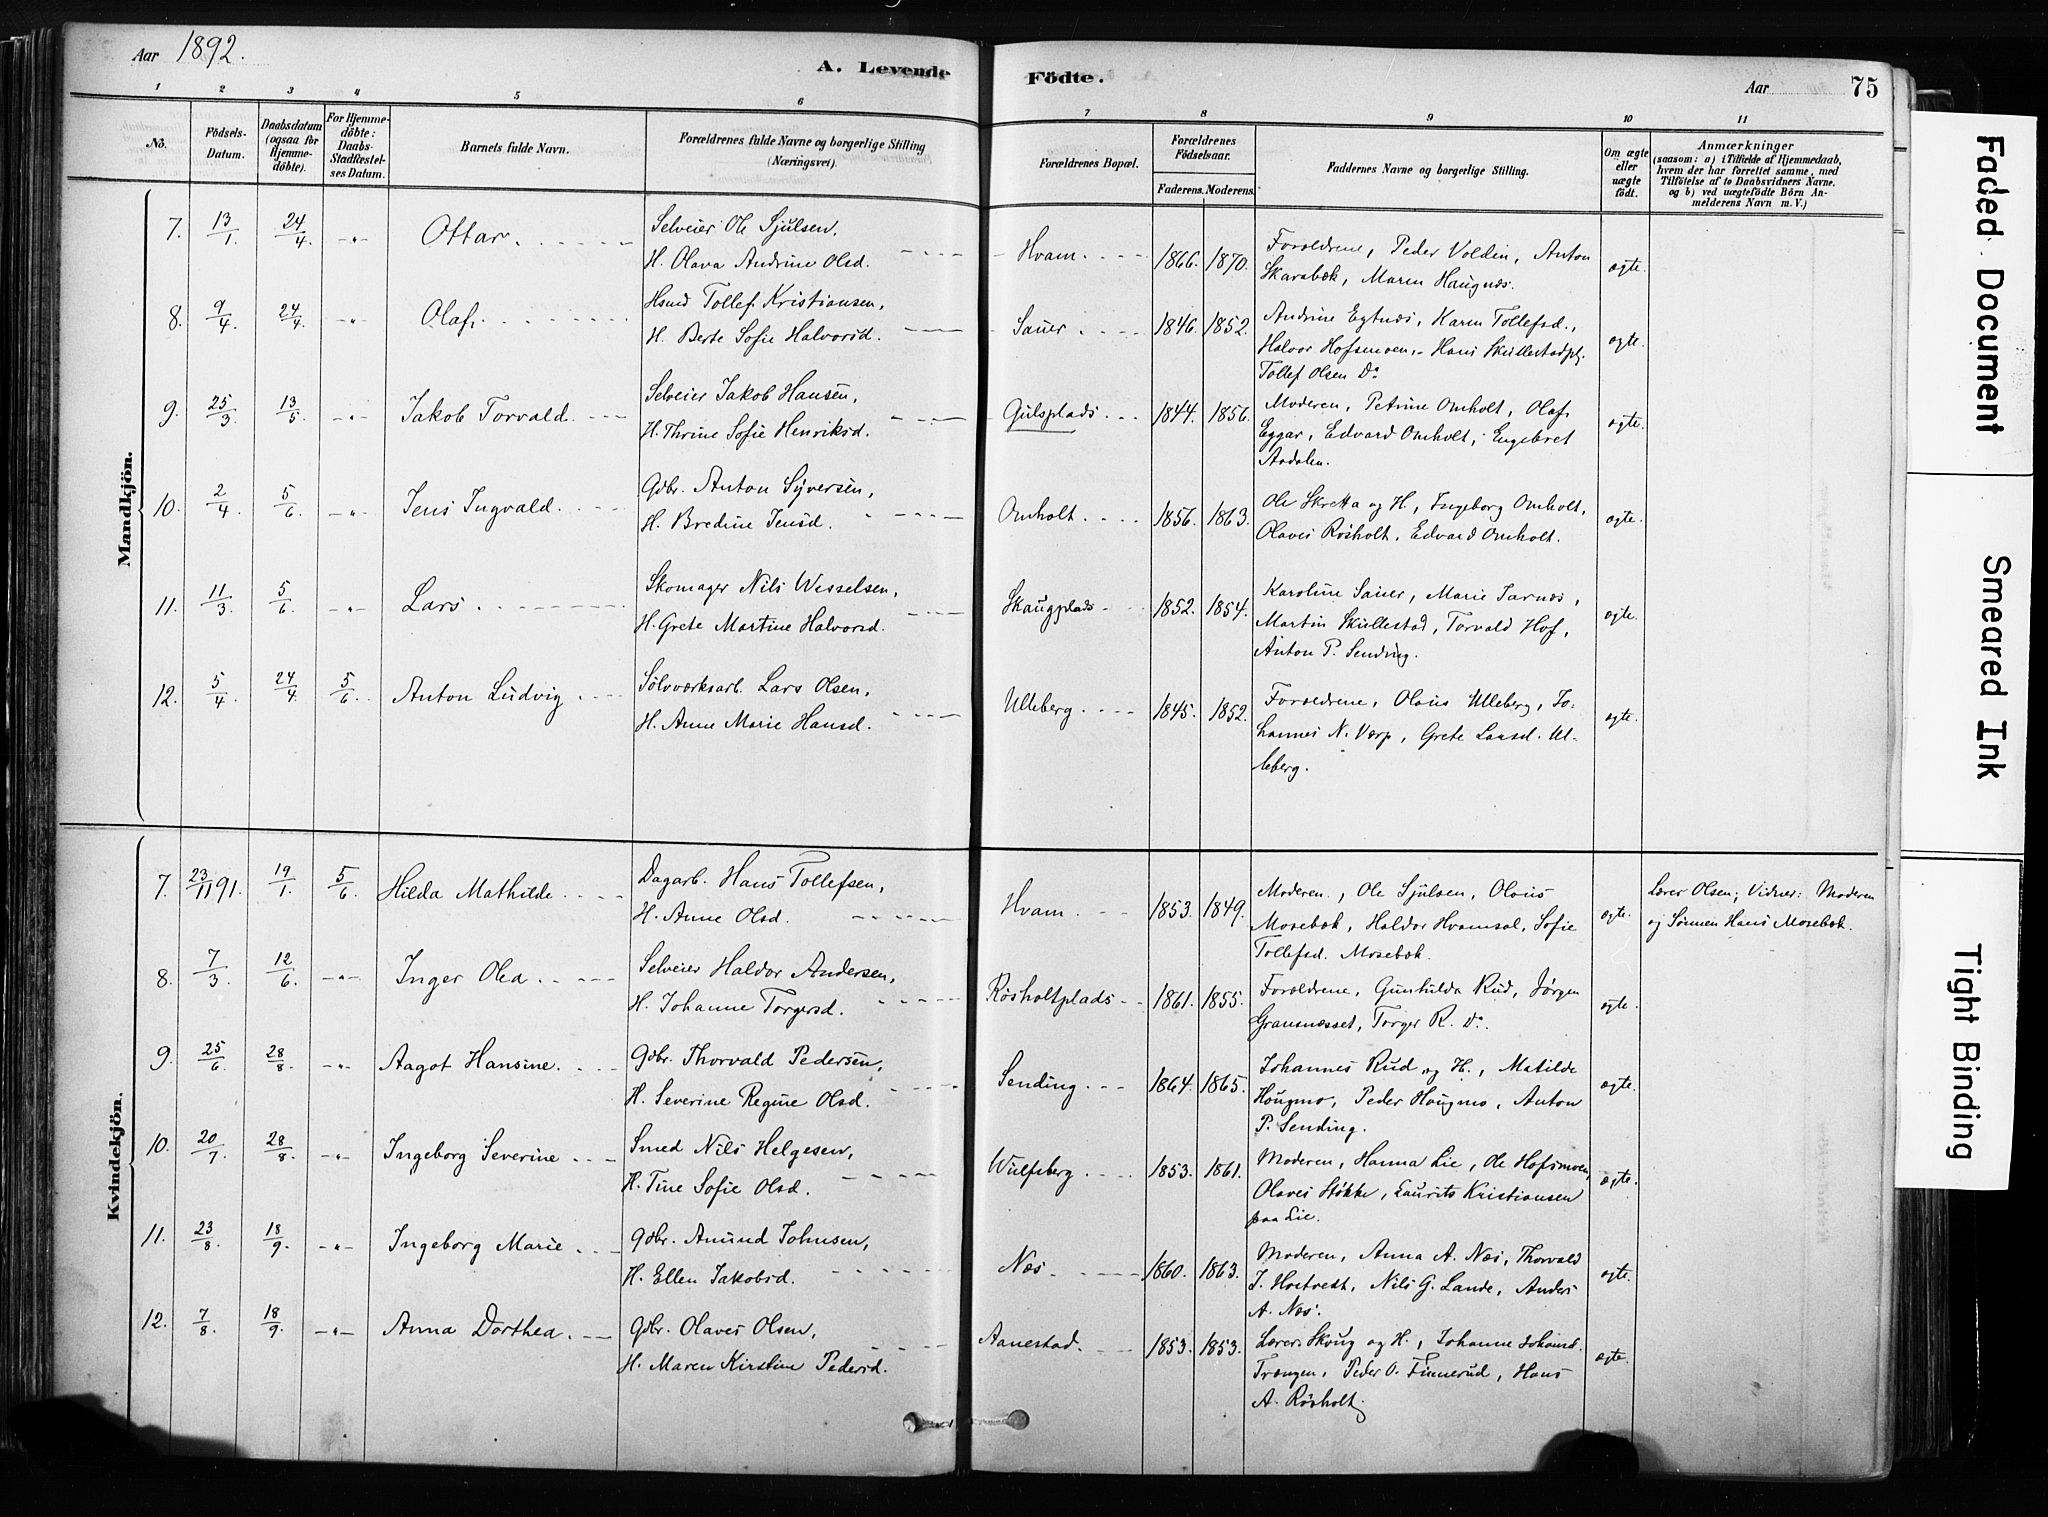 Aar 1892.
A. Levende
Födte.
Aar
75
1 2 3 4 5 6 7 8 9 10 11
No.
Födsels-
Datum.
Daabsdatum
(ogsaa for
Hjemme-
döbte).
For Hjemme-
döbte:
Daabs-
Stadfæstel-
ses Datum.
Barnets fulde Navn.
Forældrenes fulde Navne og borgerlige Stilling
(Næringsvei).
Forældrenes Bopæl.
Forældrenes
Födselsaar.
Faderens. Moderens.
Faddernes Navne og borgerlige Stilling.
Om ægte
eller
uægte
födt.
Anmærkninger
(saasom: a) i Tilfælde af Hjemmedaab,
hvem der har forrettet samme, med
Tilföielse af to Daabsvidners Navne,
og b) ved uægtefödte Börn An-
melderens Navn m. V.)
Mandkjön.
7. 13/1 24/4 -"- Ottar.
Selveier Ole Sjulsen,
H. Olava Andrine Olsd.
Hvam. 1866. 1870.
Forældrene, Peder Voldin, Anton
Skarabæk, Maren Haugnæs.
ægte.
8. 9/4 24/4 -"- Olaf.
Hsmd Tollef Kristiansen,
H. Berte Sofie Halvorsd.
Sauer 1846. 1852.
Andrine Egtnæs, Karen Tollefsd.,
Halvor Hofsmoen, Hans Skullestadpl.
Tollef Olsen Do
ægte.
9. 25/3 13/5 -"- Jakob Torvald.
Selveier Jakob Hansen,
H. Thrine Sofie Henriksd.
Gulsplads. 1844. 1856.
Moderen, Petrine Omholt, Olaf
Eggar, Edvard Omholt, Engebret
Aadalen.
ægte.
10. 2/4 5/6 -"- Jens Ingvald.
Gdbr. Anton Syversen,
H. Bredine Jensd.
Omholt. 1856. 1863.
Ole Skretta og H., Ingeborg Omholt,
Olaves Røsholt, Edvard Omholt.
ægte.
11. 11/3 5/6 -"- Lars.
Skomager Nils Wesselsen,
H. Grete Martine Halvorsd.
Skaugplads 1852. 1854.
Karoline Sauer, Marie Tarnæs,
Martin Skullestad, Torvald Hof,
Anton P. Sending.
ægte.
12. 5/4 24/4 5/6 Anton Ludvig
Sølvværksarb. Lars Olsen,
H. Anne Marie Hansd.
Ulleberg. 1845. 1852.
Forældrene, Olaus Ulleberg, Jo-
hannes N. Værp, Grete Larsd. Ul-
leberg.
ægte.
Kvindekjön.
7. 23/11 91. 19/1. 5/6 Hilda Mathilde
Dagarb. Hans Tollefsen,
H. Anne Olsd.
Hvam 1853. 1849.
Moderen, Ole Sjulsen, Olaus
Mosebæk, Haldor Hvamsal, Sofie
Tollefsd. Mosebæk.
ægte.
Lærer Olsen; Vidner: Moderen
og Sønnen Hans Mosebæk.
8. 7/3 12/6 -"- Inger Olea
Selveier Haldor Andersen,
H. Johanne Torgersd.
Røsholtplads 1861. 1855.
Forældrene, Gunhilda Rud, Jørgen
Gransnæsset, Torger R. Do.
ægte.
9. 25/6 28/8 -"- Aagot Hansine.
Gdbr. Thorvald Pedersen,
H. Severine Regine Olsd.
Sending 1864. 1865.
Johannes Rud og H., Matilde
Hougmo, Peder Hougmo, Anton
P. Sending.
ægte.
10. 20/7 28/8 -"- Ingeborg Severine
Smed Nils Helgesen,
H. Tine Sofie Olsd.
Wulfsberg 1853. 1861.
Moderen, Hanna Lie, Ole Hofsmoen,
Olaves Støkke, Laurits Kristiansen
paa Lie.
ægte.
11. 23/8 18/9. -"- Ingeborg Marie
Gdbr. Amund Johnsen,
H. Ellen Jakobsd.
Næs. 1860. 1863.
Moderen, Anna A. Næs, Thorvald
J. Hostvedt, Nils G. Lande, Anders
A. Næs.
ægte.
12. 7/8 18/9. -"- Anna Dorthea.
Gdbr. Olaves Olsen,
H. Maren Kirstine Pedersd.
Aanestad. 1853. 1853.
Lærer Skoug og H., Johanne Johansd.
Trængen, Peder O. Finnerud, Hans
A. Røsholt.
ægte.
Faded Document
Smeared Ink
Tight Binding